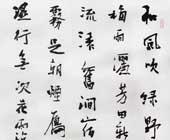 和風吹綠野
梅雨灑芳田新
流添舊澗宿
霧足朝煙雁
濕行無次花沾